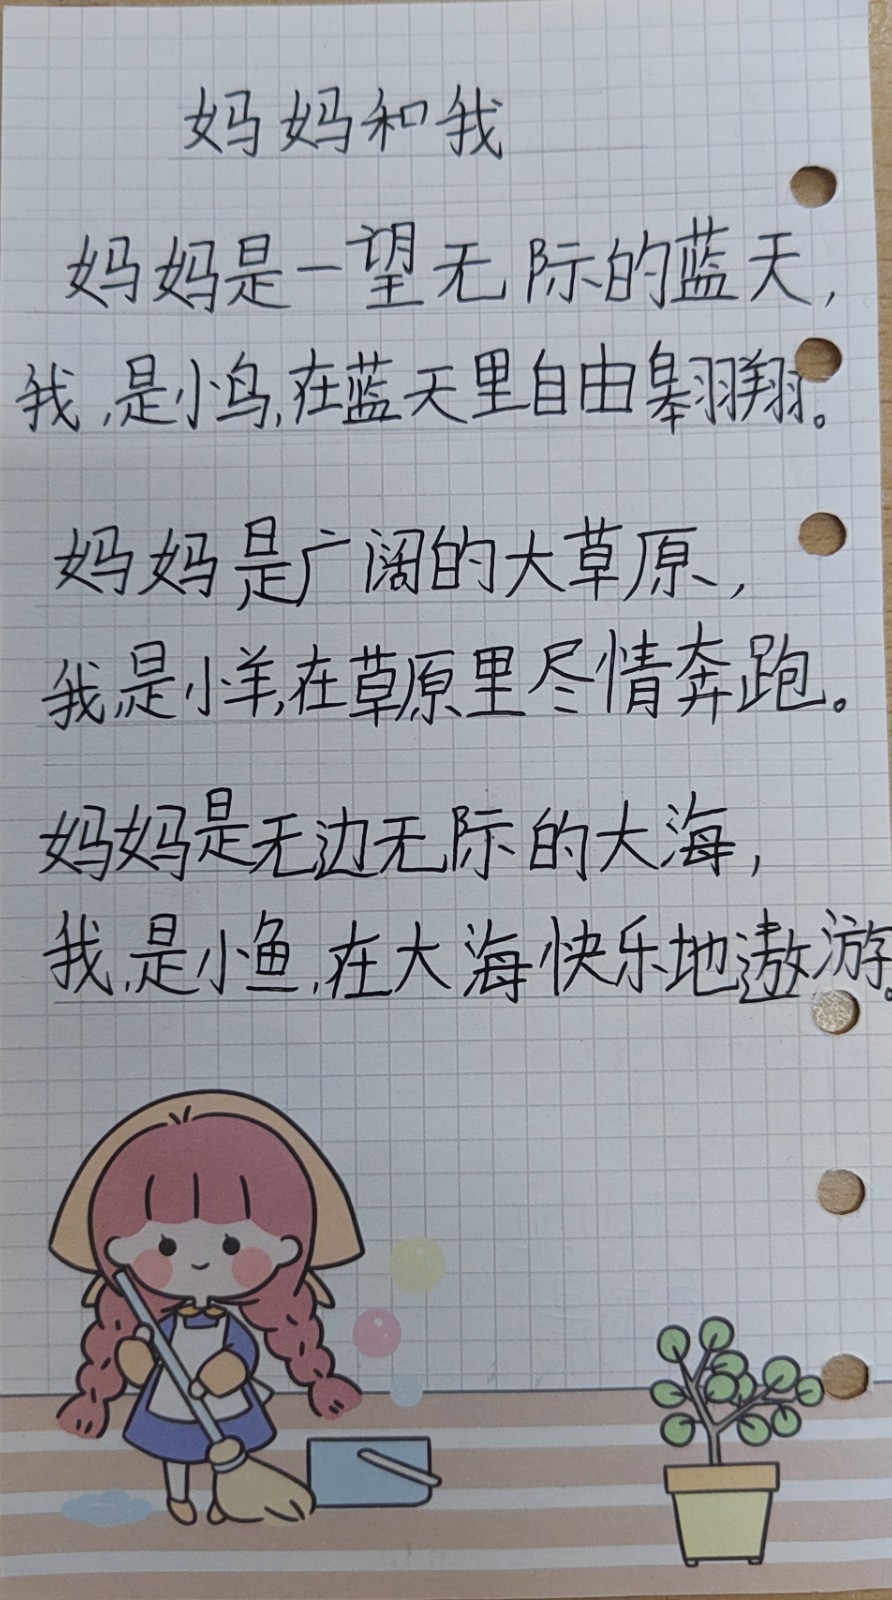 妈妈和我
妈妈是一望无际的蓝天，
我，是小鸟，在蓝天里自由翱翔。
妈妈是广阔的大草原、，
我，是小羊，在草原里尽情奔跑。
妈妈是无边无际的大海，
我，是小鱼，在大海快乐地遨游。